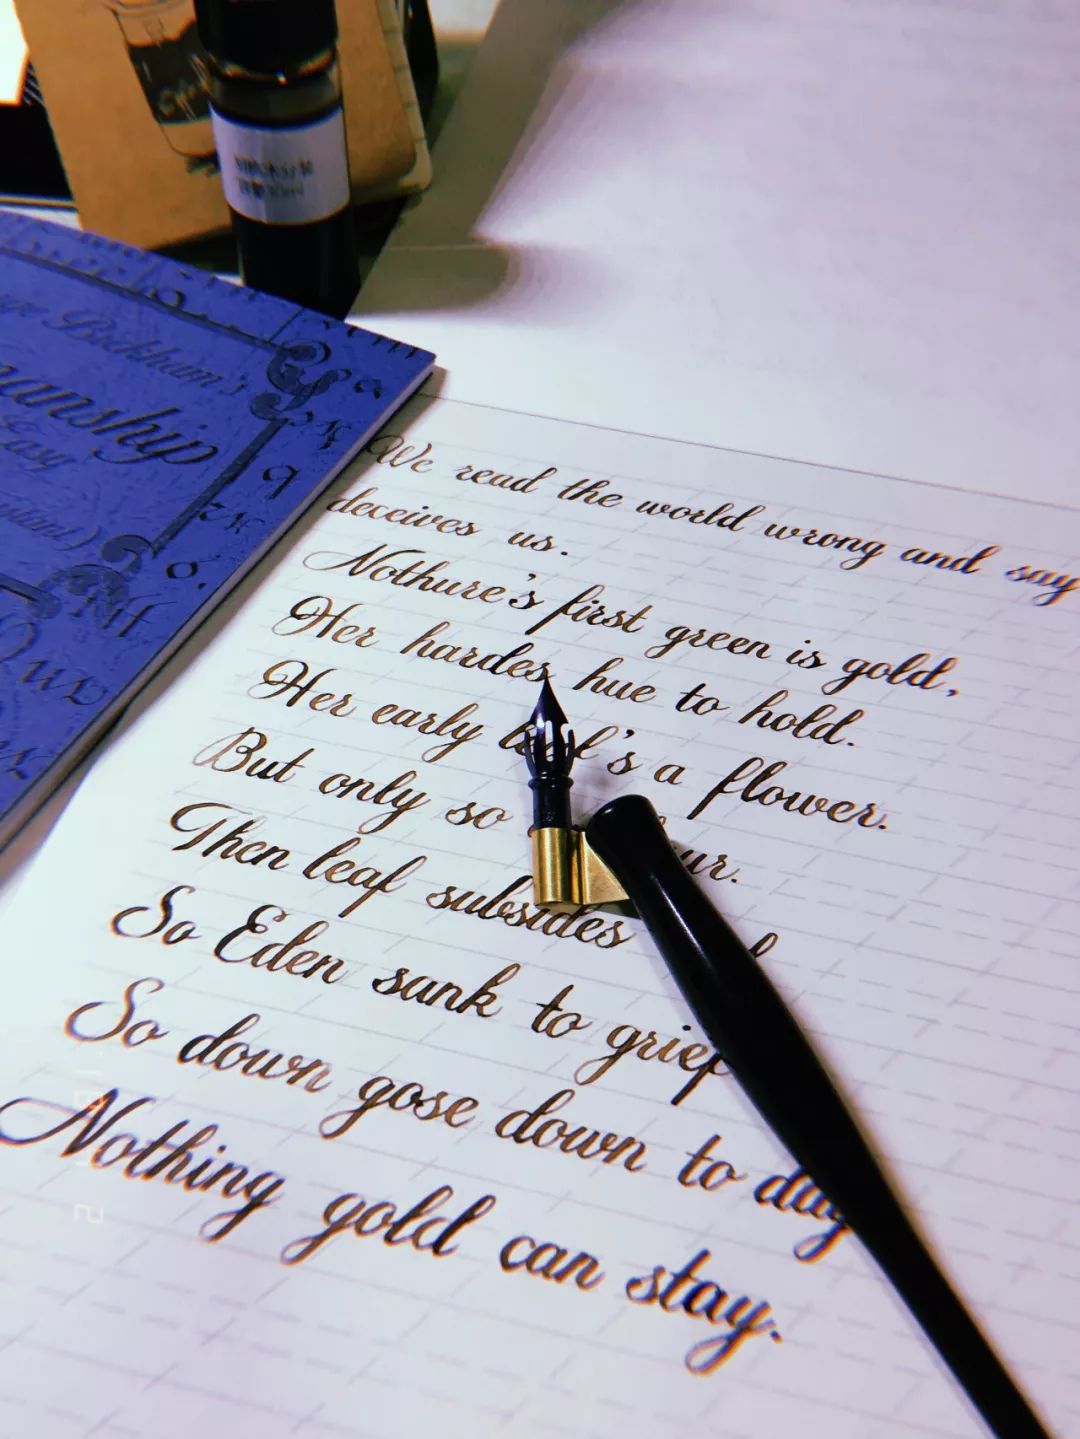 Beckham's
manship
Easy
We read the world wrong and say
deceives us.
Nothure's first green is gold,
Her hardes hue to hold.
Her early leaf's a flower.
But only so ur.
Then leaf subsides
So Eden sank to grief
So down gose down to day
Nothing gold can stay.